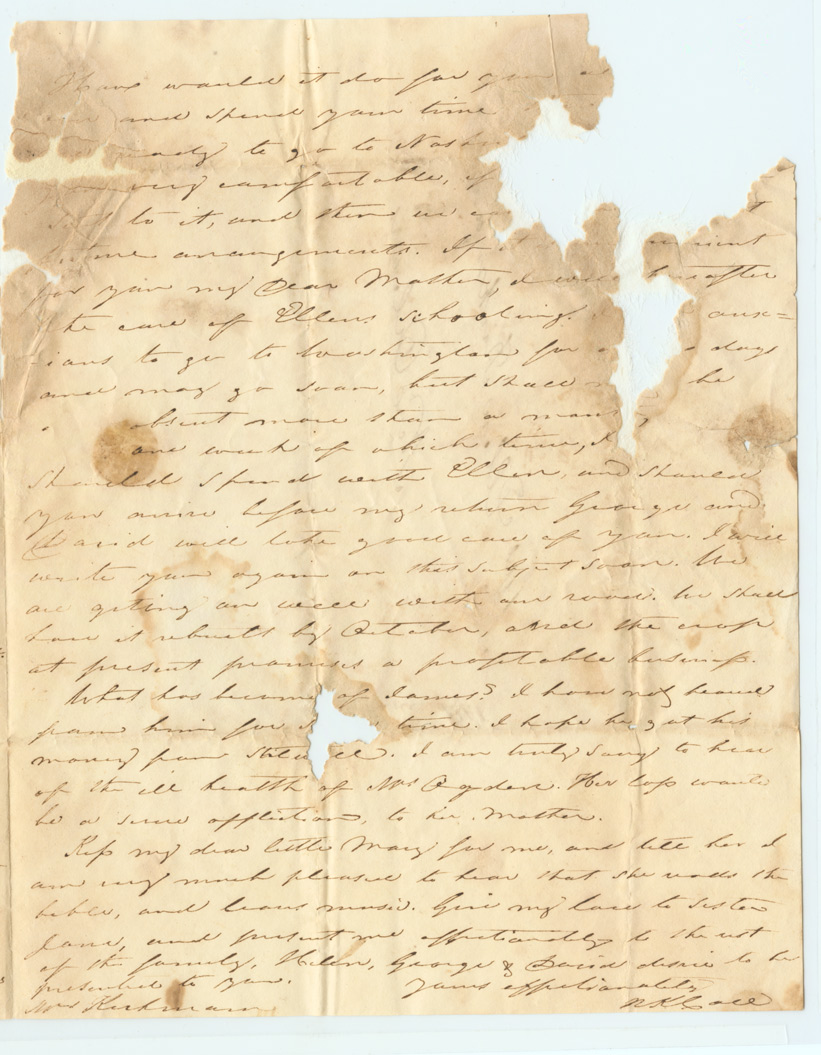 How would it do for you
and spend your time
ready to go to Nash
very comfortable, if
to it, and then we
future arrangements. If it
for you my Dear Mother, I will hereafter
the care of Ellens schooling. anx=
ious to go to Washington for days
and may go soon, but shall be
absent more than a month,
one week of which time, I
should spend with Ellen, and should
you arrive before my return George and
David will take good care of you. I will
write you again on this subject soon. We
are geting on well with our road. We shall
have it rebuilt by October, and the crop
at present promises a profitable business.
What has become of James? I have not heard
from him for time. I hope he got his
money from . I am truly sorry to hear
of the ill health of Mrs Ogden. Her loss would
be a severe affliction, to her Mother.
Kiss my dear little Mary for me, and tell her I
am very much pleased to hear that she reads the
bible, and learns music. Give my love to Sister
Jane, and present me affectionately to the rest
of the family, Helen, George & David desire to be
presented to you. Yours affectionately
Mrs Kirkman RKCall